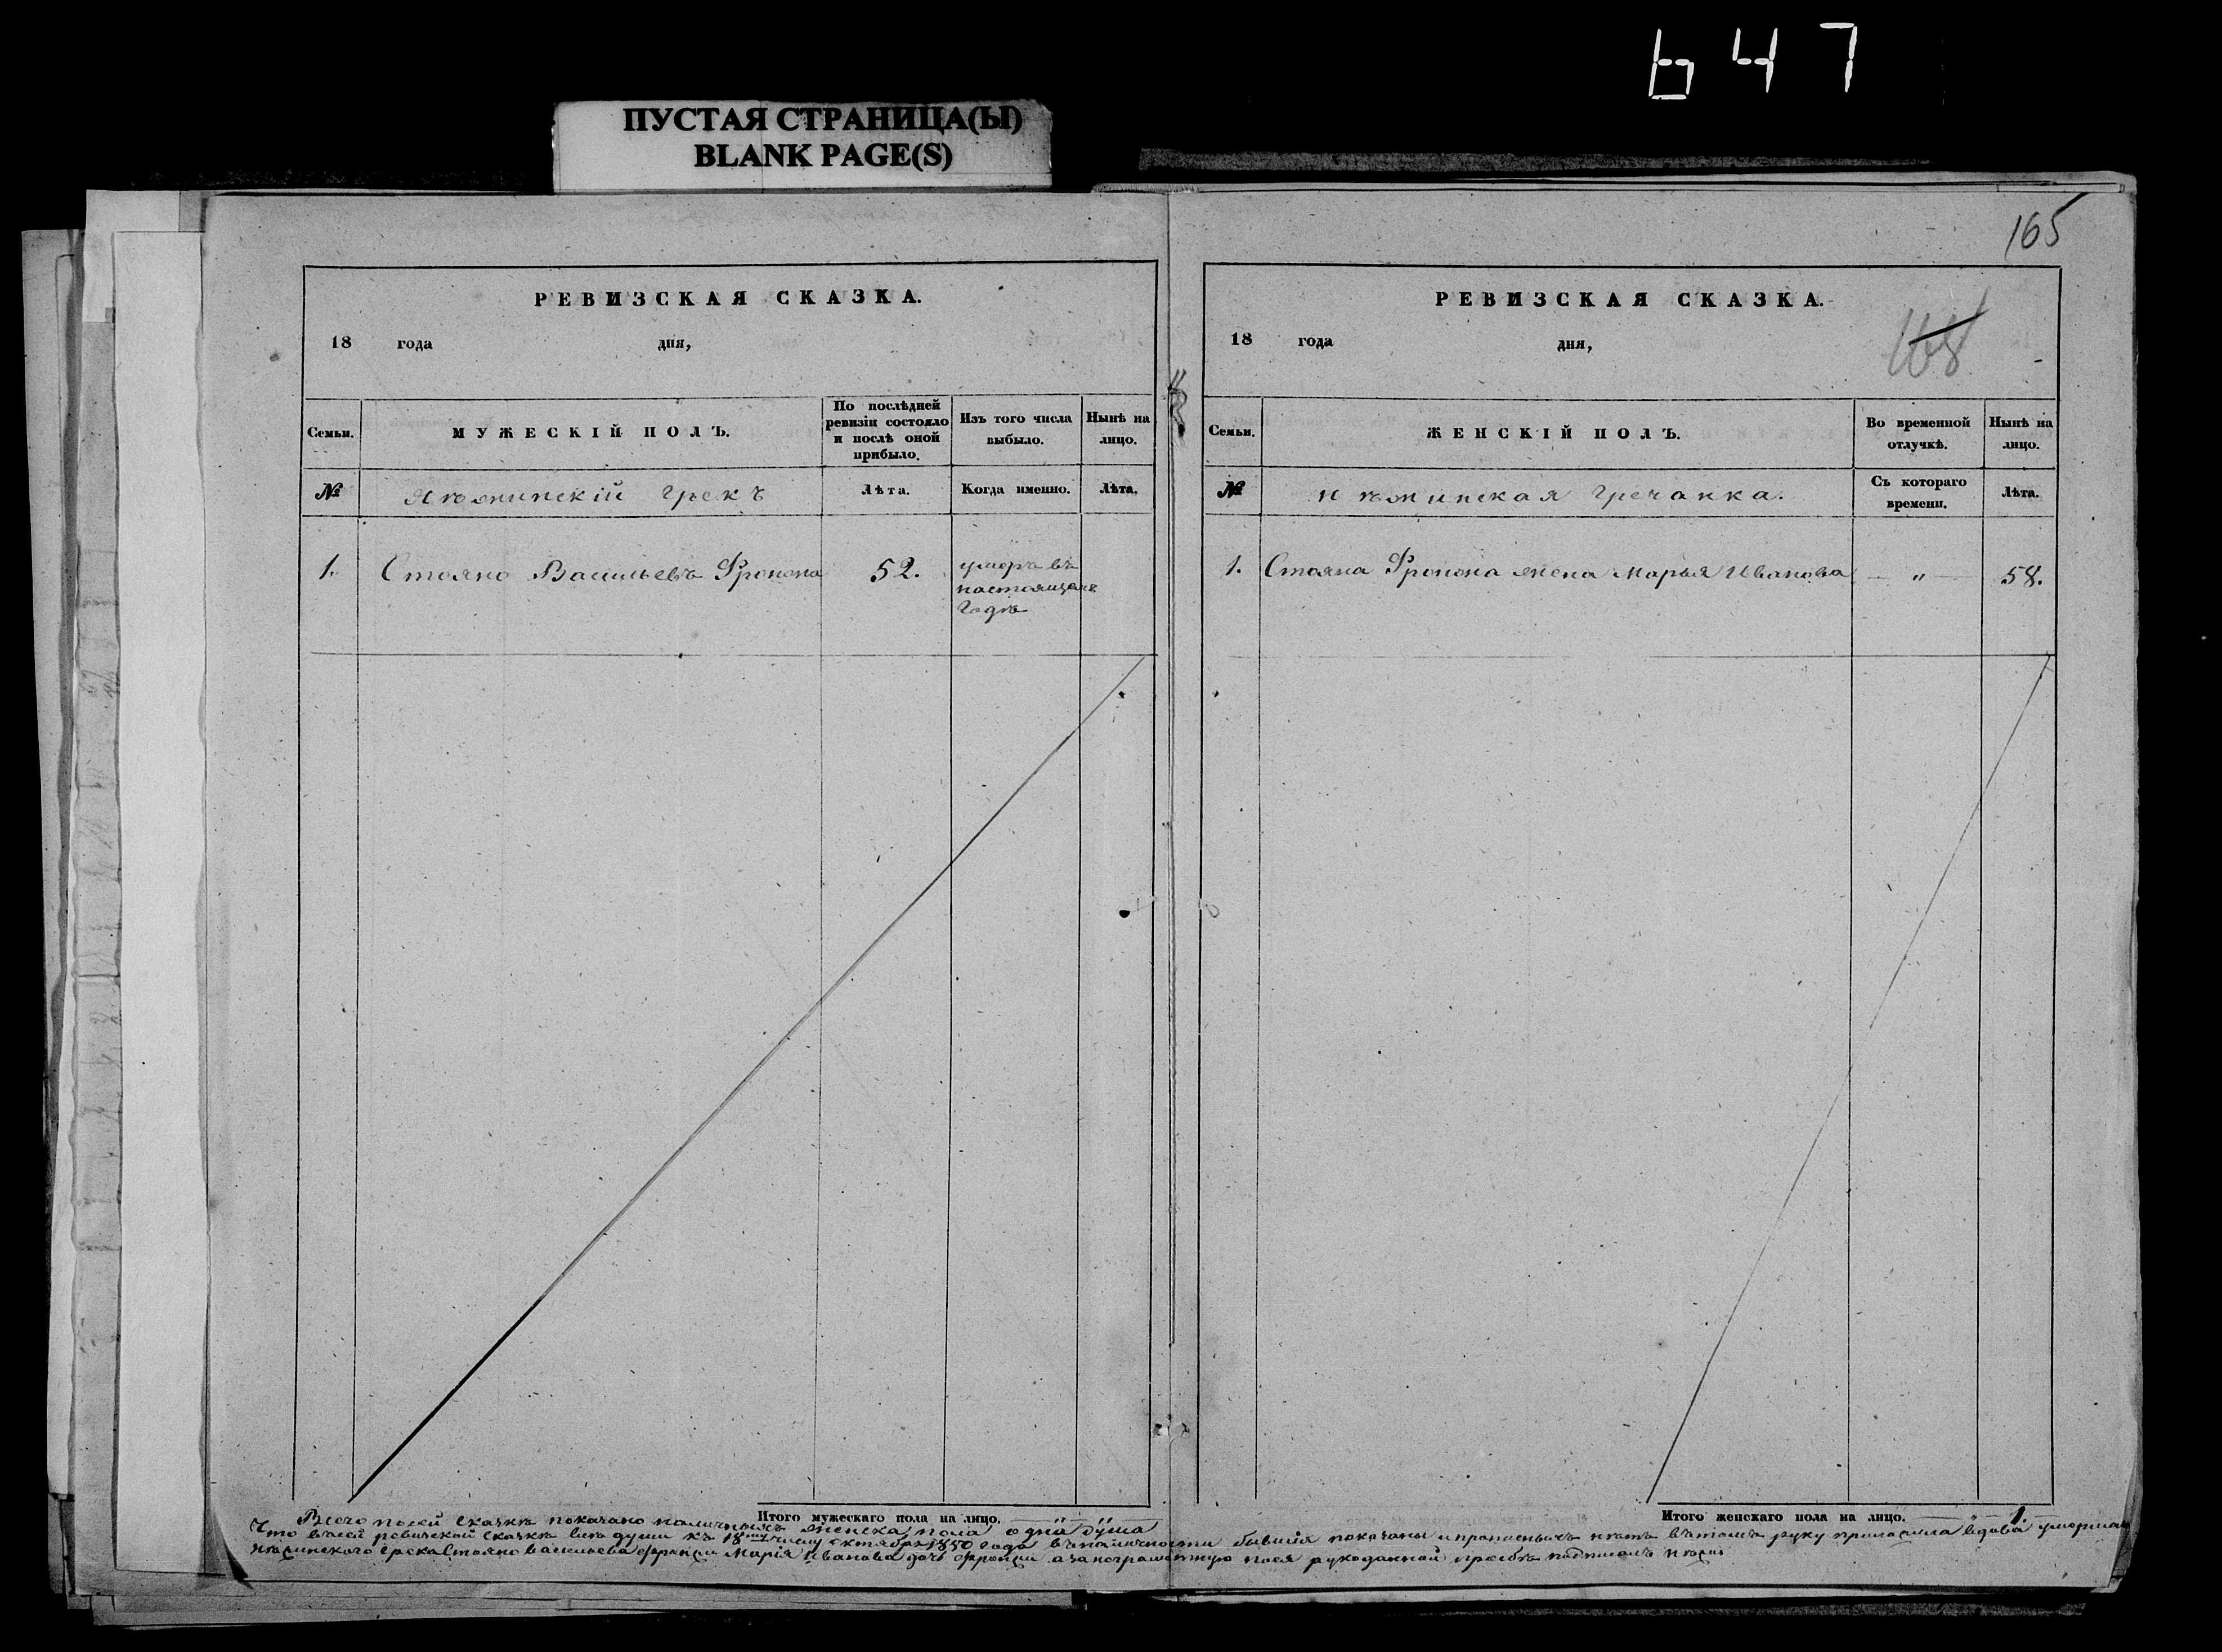 647
ПУСТАЯ СТРАНИЦА(Ы)
BLANK PAGE(S)
РЕВИЗСКАЯ СКАЗКА.
18 года дня,
Семьи.
МУЖЕСКІЙ ПОЛЪ.
По послѣдней ревизіи состояло и послѣ оной прибыло.
Изъ того числа выбыло.
Нынѣ на лицо.
№
Нѣжинскій Грекъ
Лѣта.
Когда именно.
Лѣта.
1. Стояно Васильевъ Фропона 52. умеръ въ
настоящемъ
Годѣ
Итого мужескаго пола на лицо.
165
РЕВИЗСКАЯ СКАЗКА.
168
18 года дня,
Семьи.
ЖЕНСКІЙ ПОЛЪ.
Во временной отлучкѣ.
Нынѣ на лицо.
№
Нѣжинская Гречанка.
Съ котораго времени.
Лѣта.
1. Стояна Фропона жена Марья Иванова — " — 58.
Итого женскаго пола на лицо. — " — 1.
Всего по сей сказкѣ показано наличныхъ женска пола одна душа
Что въ сей ревизской сказкѣ все души къ 18му числу октября 1850 года въ наличности бывшія показаны и прописныхъ нѣтъ въ томъ руку приложила вдова умершаго
нѣжинского грека Стояно Васильева Марія Иванова дочь а за неграмотную по ея рукоданной прозбѣ подписалъ